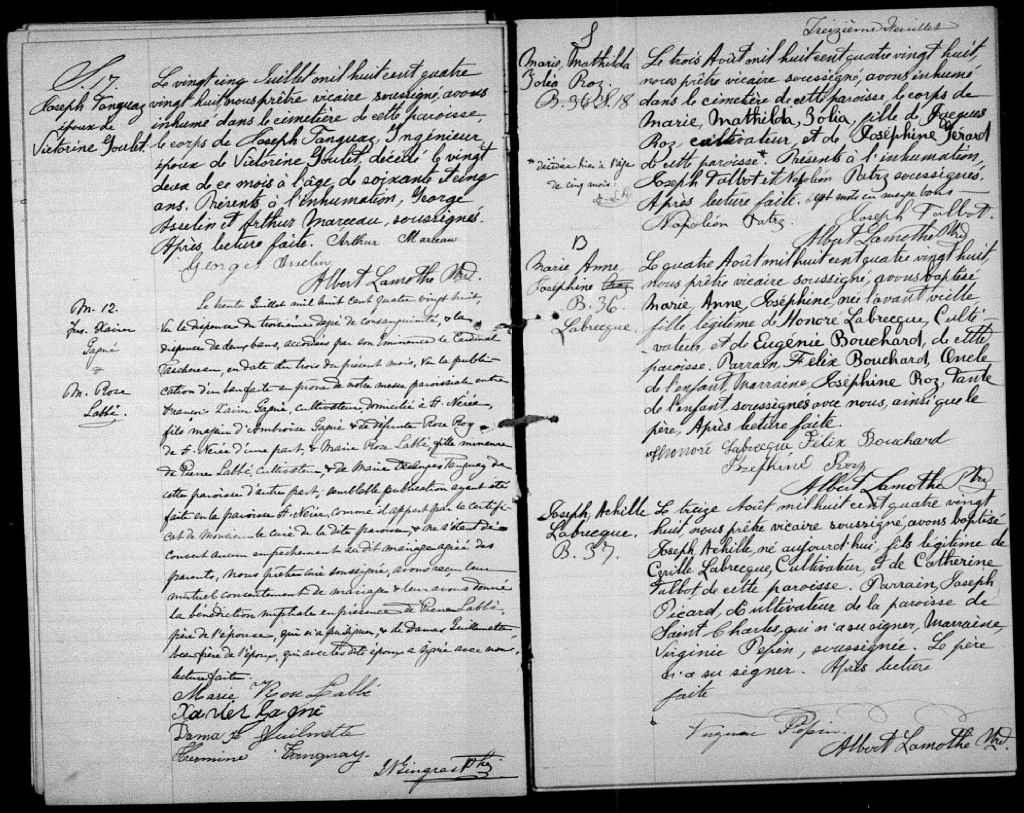 S. 7
Joseph Tanguay
époux de
Victorine Goulet.
Le vingt cinq Juillet mil huit cent quatre
vingt huit nous prêtre vicaire soussigné, avons
inhumé dans le cimetière de cette paroisse,
le corps de Joseph Tanguay, Ingénieur,
époux de Victorine Goulet, décédé le vingt
deux de ce mois à l'âge de soixante & cinq
ans. Présents à l'inhumation, George
Asselin et Arthur Marceau, soussignés.
Après lecture faite. Arthur Marceau
Georges Asselin
Albert Lamothe Ptre.
M. 12.
Frs. Xavier
Gagné
&
M. Rose
Labbé.
Le trente Juillet mil huit cent quatre vingt huit,
Vu la dispense du troisième degré de consanguinité & la
dispense de deux bans, accordées par son éminence le Cardinal
Taschereau, en date du trois du présent mois, Vu la publi-
cation d'un ban faite au prône de notre messe paroissiale entre
François Xavier Gagné, cultivateur, domicilié à St. Nérée,
fils majeur d'Ambroise Gagné & de défunte Rose Roy
de St. Nérée d'une part, & Marie Rose Labbé, fille mineure
de Pierre Labbé, cultivateur, & de Marie Desanges Tanguay de
cette paroisse d'autre part; semblable publication ayant été
faite en la paroisse St. Nérée, comme il appert par le certifi-
cat de Monsieur le curé de la dite paroisse & ne s'étant dé-
couvert aucun empêchement au dit mariage agréé des
parents, Nous prêtre curé soussigné, avons reçu leur
mutuel consentement de mariage & leur avons donné
la bénédiction nuptiale en présence de Pierre Labbé,
père de l'épouse, qui n'a pu signer, & de Damas Guillemette
beau frère de l'époux, qui avec les dits époux a signé avec nous,
lecture faite.
Marie Rose Labbé
Xavier Gagné
Damase Guilmette
Hermine Tanguay.
JN Gingras Ptre
Treizième feuillet
S
Marie, Mathilda
Zoléa Roy
B. 36 S. 18
* décédée hier à l'âge
de cinq mois.
A. L. P.
Le trois Août mil huit cent quatre vingt huit,
nous prêtre vicaire soussigné, avons inhumé
dans le cimetière de cette paroisse le corps de
Marie, Mathilda, Zólia, fille de Jacques
Roy, cultivateur, et de Joséphine Gérard
de cette paroisse*. Présents à l'inhumation,
Joseph Talbot et Napoléon Patry soussignés.
Après lecture faite.
Napoléon Patry. Joseph Talbot.
Albert Lamothe Ptre
B
Marie Anne,
Joséphine
B. 36.
Labrecque.
Le quatre Août mil huit cent quatre vingt huit,
nous prêtre vicaire soussigné, avons baptisé
Marie, Anne, Joséphine, née l'avant veille,
fille légitime de Honoré Labrecque, Culti-
vateur, et de Eugénie Bouchard, de cette
paroisse. Parrain, Félix Bouchard, Oncle
de l'enfant, Marraine, Joséphine Roy, Tante
de l'enfant, soussignés avec nous, ainsi que le
père, Après lecture faite.
Honoré Labrecque Félix Bouchard
Joséphine Roy
Albert Lamothe Ptre
Joseph, Achille
Labrecque.
B. 37.
Le treize Août mil huit cent quatre vingt
huit, nous prêtre vicaire soussigné, avons baptisé
Joseph Achille, né aujourd'hui, fils légitime de
Cyrille Labrecque, Cultivateur, & de Catherine
Talbot de cette paroisse. Parrain, Joseph
Picard, Cultivateur de la paroisse de
Saint Charles, qui n'a su signer, Marraine,
Virginie Pepin, soussignée. Le père
n'a su signer. Après lecture
faite
Pépin
Albert Lamothe Ptre.